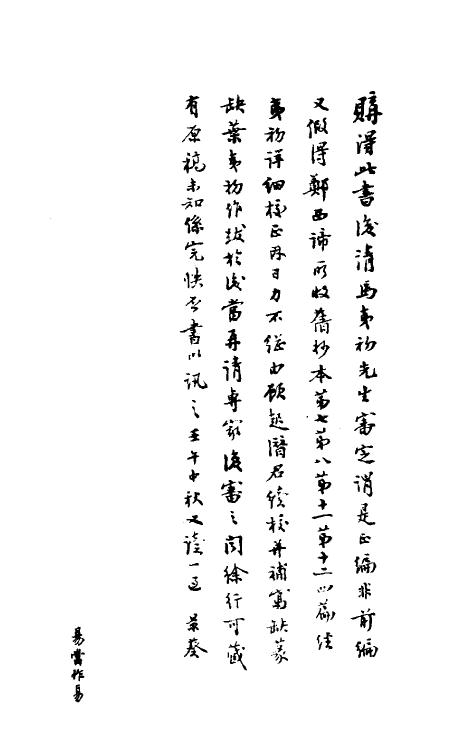 購得此書後請馬夷初先生審定謂是正編非前編
又假得鄭西諦所收舊抄本第七第八第十一第十二四篇經
夷初詳細校正因目力不繼由顧起潛君續校并補寫缺篆
缺葉夷初作跋於後當再請專家復審之聞徐行可藏
有原稿未知係完帙否書以訊之壬午中秋又讀一過 景葵
易當作昜